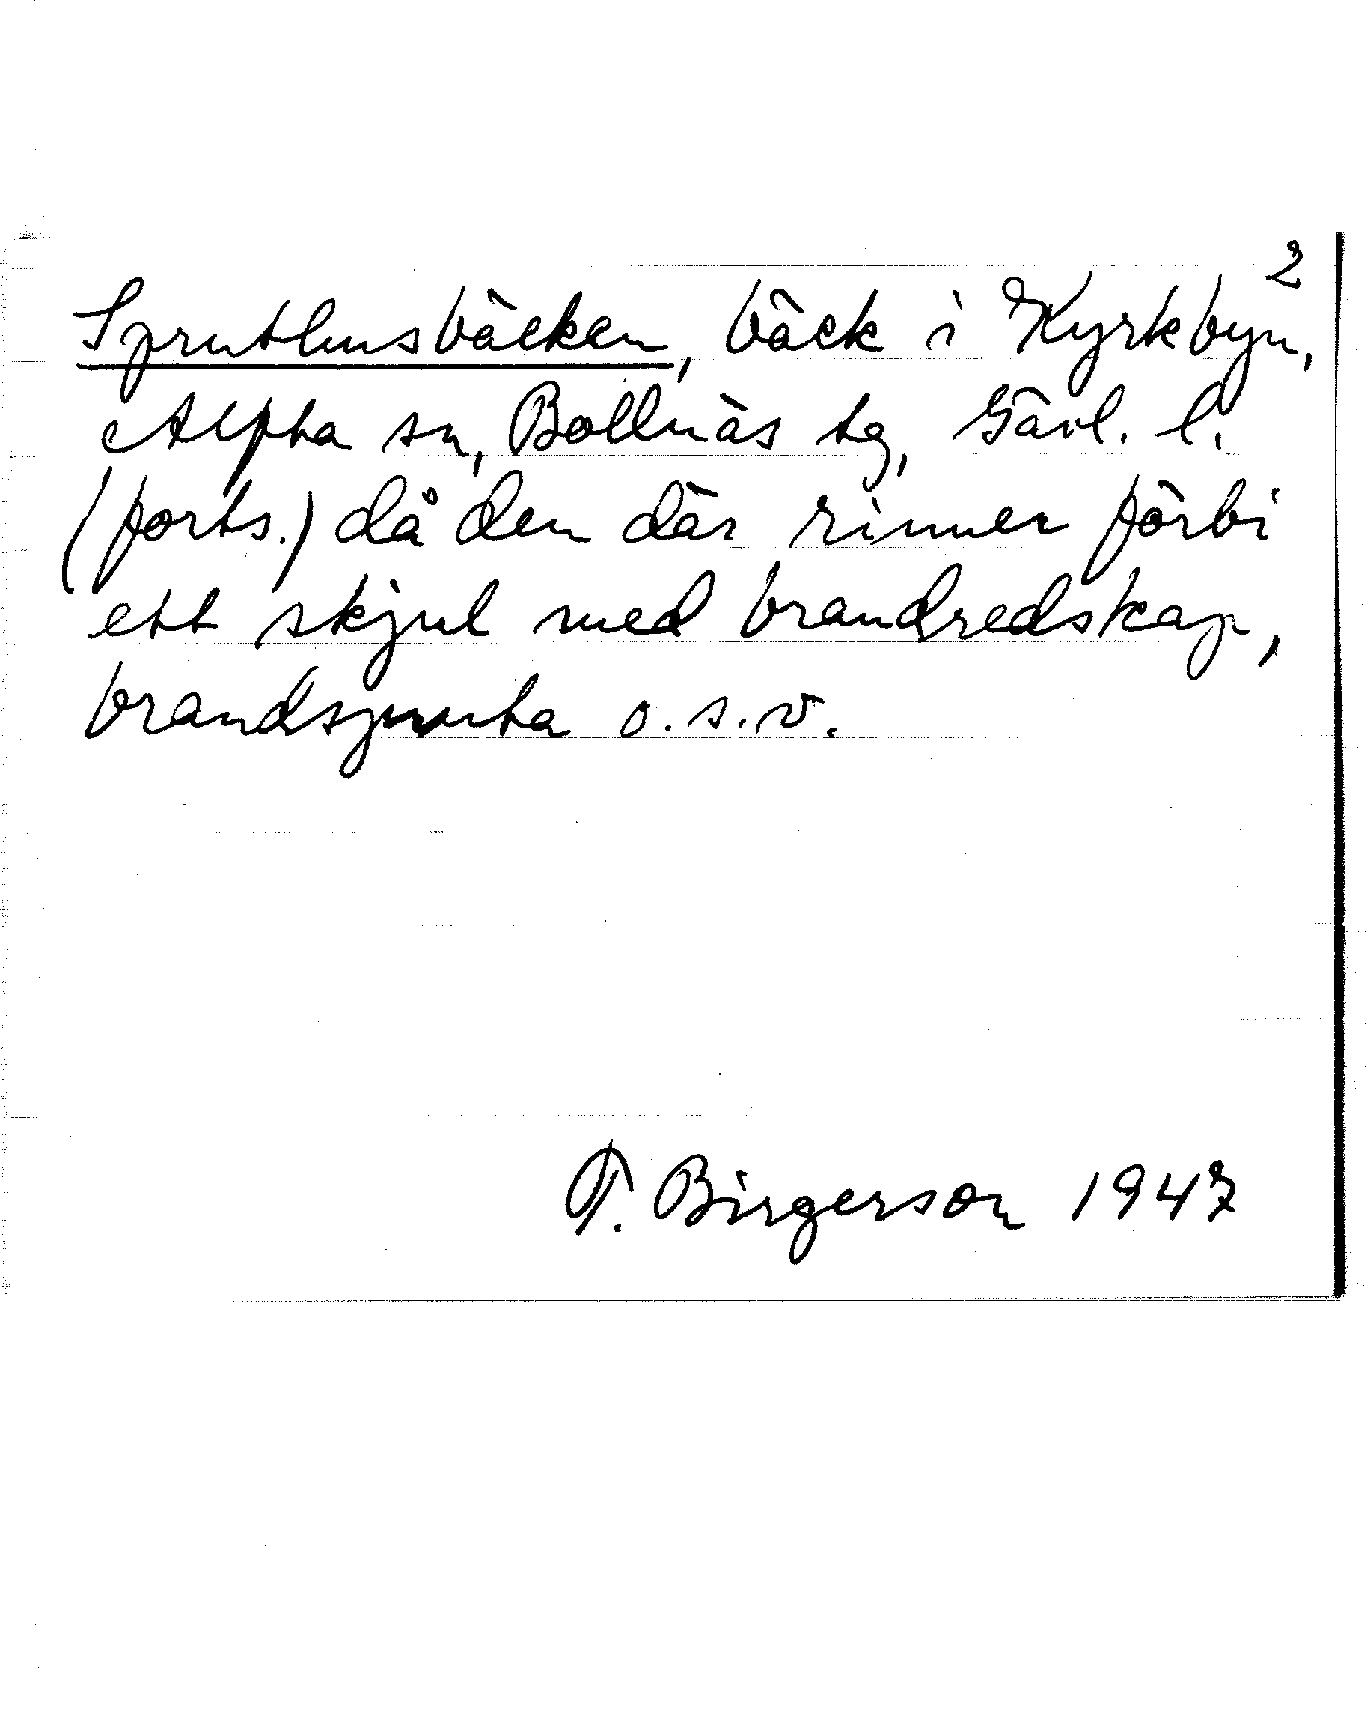 2
Spruthusbäcken, bäck i Kyrkbyn,
Alfta sn, Bollnäs tg, Gävl. l.
(forts.) då den där rinner förbi
ett skjul med brandredskap,
brandspruta o.s.v.
T. Birgerson 1947